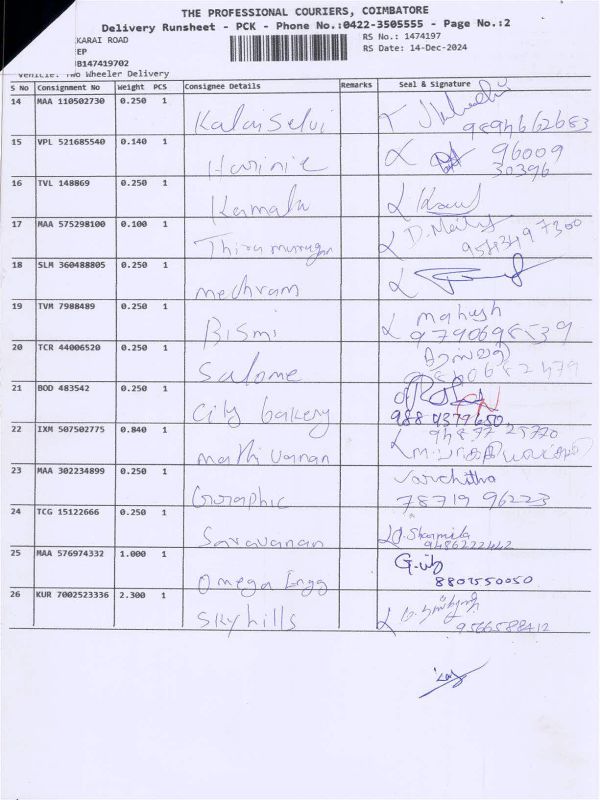 THE PROFESSIONAL COURIERS, COIMBATORE
Delivery Runsheet - PCK - Phone No.:0422-3505555 - Page No.:2
KARAI ROAD
RS No.: 1474197
EP
RS Date: 14-Dec-2024
B147419702
Vehicle: Two Wheeler Delivery
S No Consignment No Weight PCS Consignee Details Remarks Seal & Signature
14 MAA 110502730 0.250 1 Kalai Selvi
9894662683
15 VPL 521685540 0.140 1 Harinie 96009
30396
16 TVL 148869 0.250 1 Kamala
17 MAA 575298100 0.100 1 Thirumurugan
9583497300
18 SLM 360488805 0.250 1
19 TVM 7988489 0.250 1 Bismi mahesh
9790698539
20 TCR 44006520 0.250 1 Salome
21 BOD 483542 0.250 1 City bakery
9884377650
22 IXM 507502775 0.840 1 mathivanan 94877 25770
23 MAA 302234899 0.250 1 Graphic Varchitha
78719 96223
24 TCG 15122666 0.250 1 Saravanan D. Sharmila
9486222442
25 MAA 576974332 1.000 1 Omega Engg
8807550050
26 KUR 7002523336 2.300 1 Sky hills
9566588412